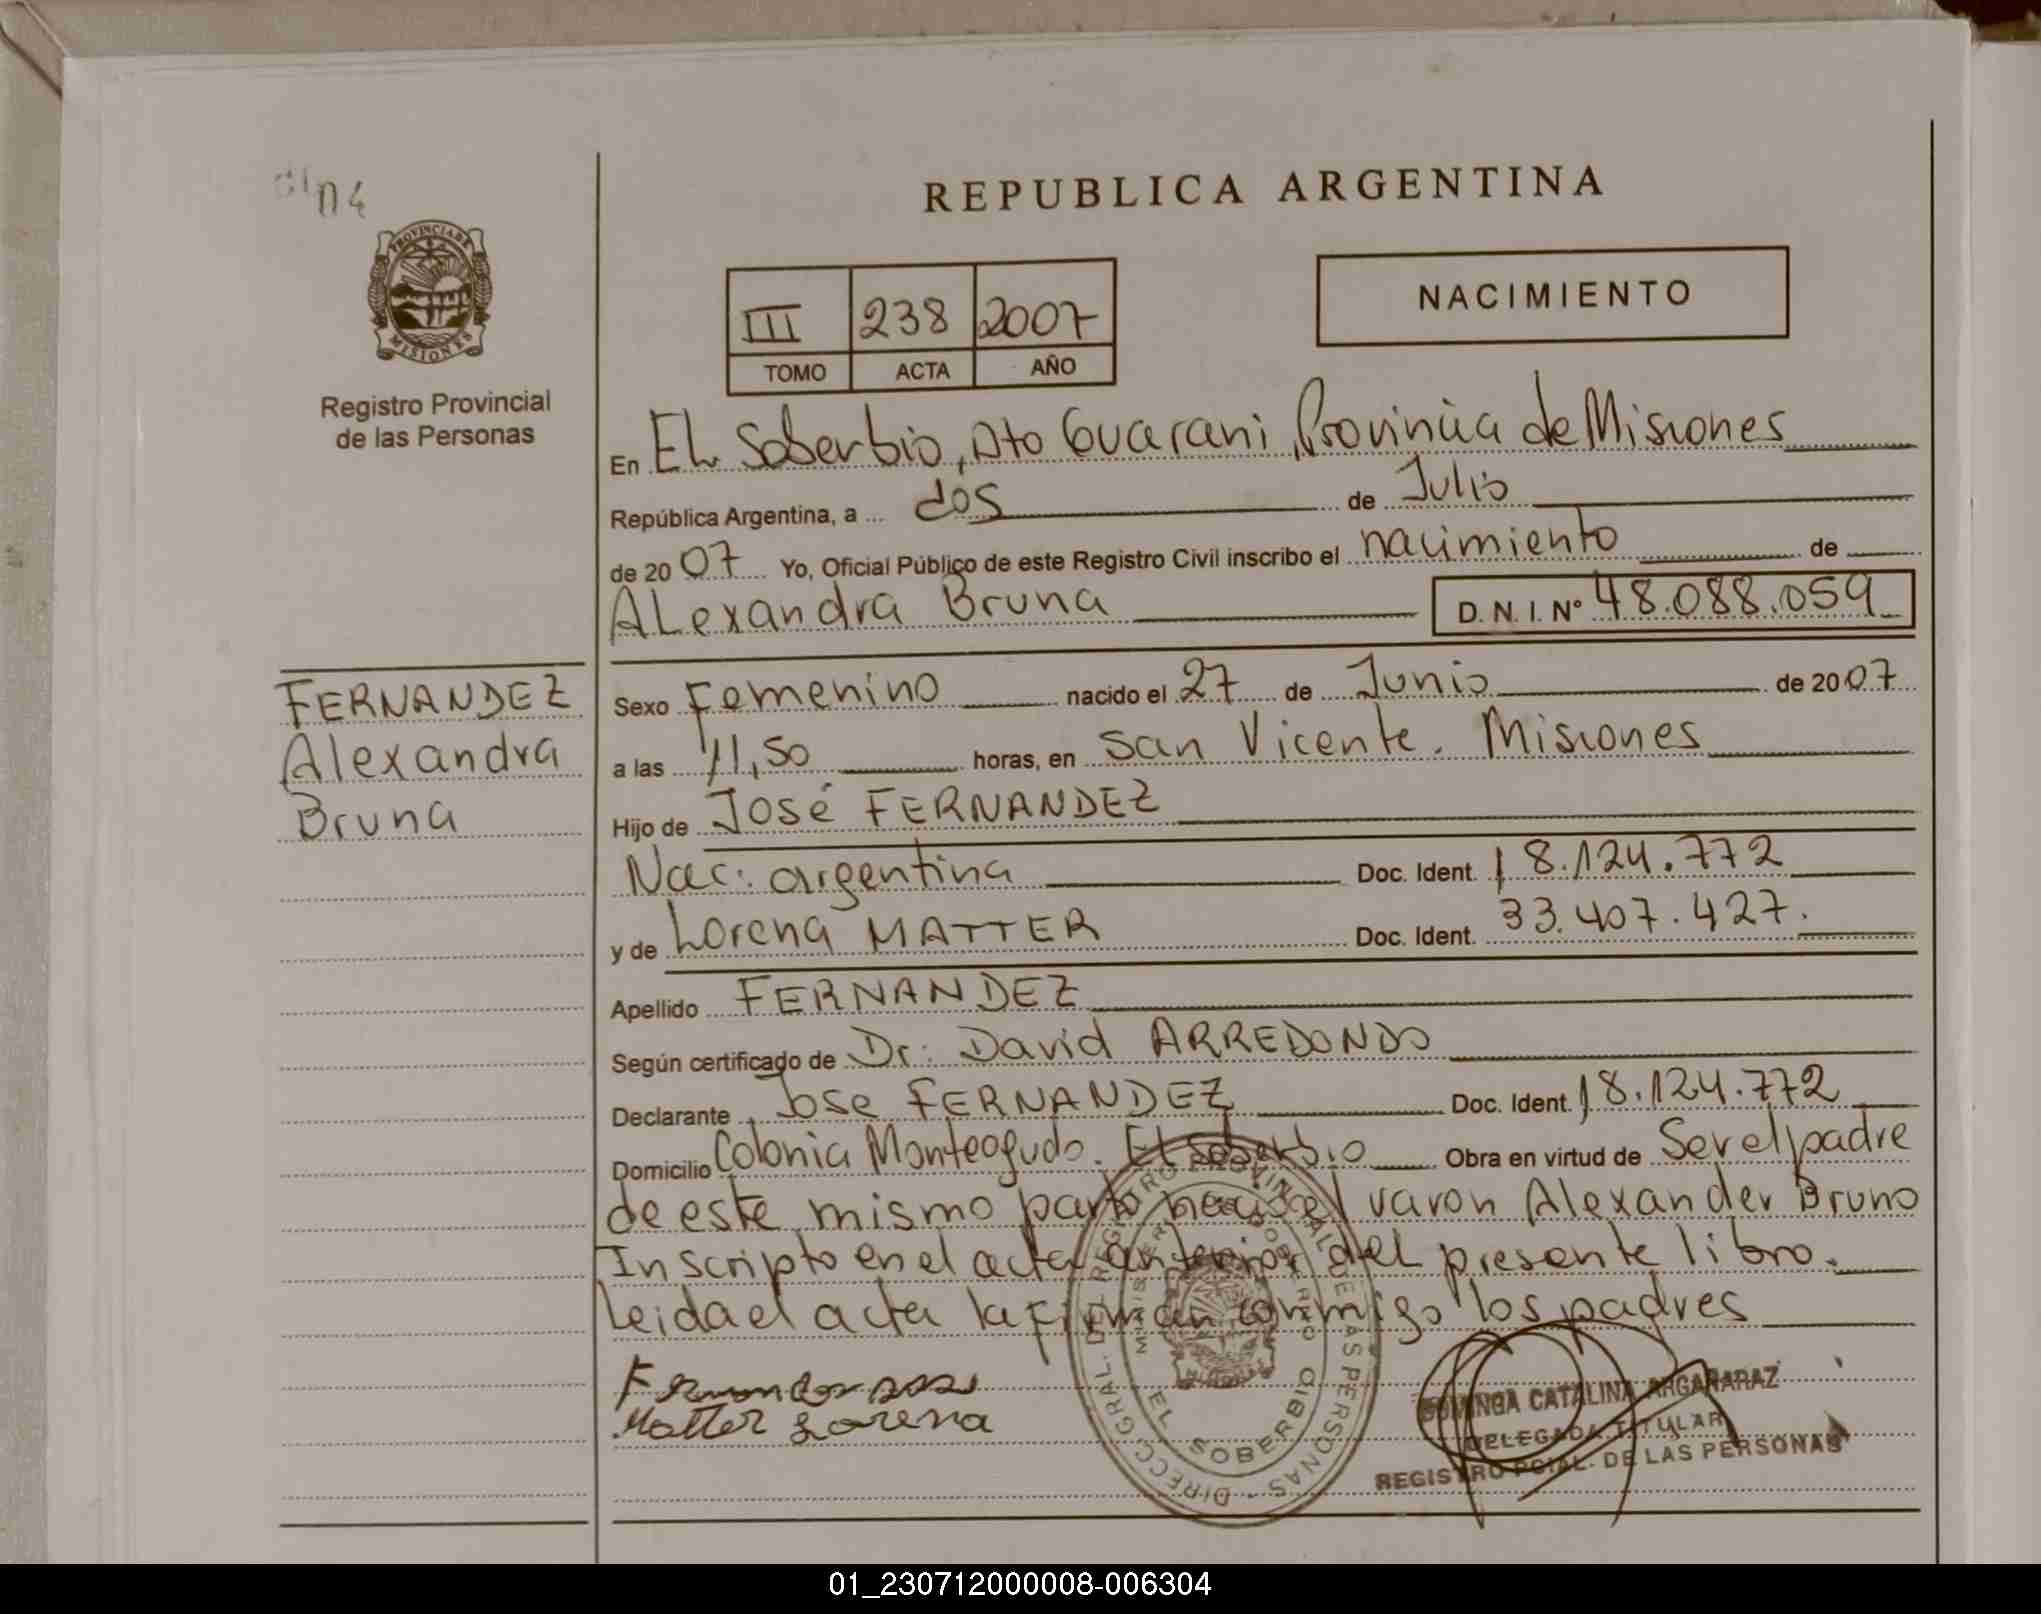 04
REPUBLICA ARGENTINA
PROVINCIA DE
MISIONES
Registro Provincial
de las Personas
III 238 2007
TOMO ACTA AÑO
NACIMIENTO
En EL Soberbio, Dto Guarani, Provincia de Misiones
República Argentina, a dos de Julio
de 2007 Yo, Oficial Público de este Registro Civil inscribo el nacimiento de
ALexandra Bruna D.N.I. Nº 48.088.059
FERNANDEZ
Alexandra
Bruna
Sexo Femenino nacido el 27 de Junio de 2007
a las 11,50 horas, en San Vicente. Misiones
Hijo de José FERNANDEZ
Nac: argentina Doc. Ident. 18.124.772
y de Lorena MATTER Doc. Ident. 33.407.427.
Apellido FERNANDEZ
Según certificado de Dr. David ARREDONDO
Declarante Jose FERNANDEZ Doc. Ident. 18.124.772
Domicilio Colonia Monteagudo. El Soberbio Obra en virtud de Ser el padre
de este mismo parto nació el varon Alexander Bruno
Inscripto en el acta anterior del presente libro.
Leida el acta la firman conmigo los padres
Matter Lorena
DIRECC. GRAL. DEL REGISTRO PROVINCIAL DE LAS PERSONAS
EL SOBERBIO
DOMINGA CATALINA ARGAÑARAZ
DELEGADA TITULAR
REGISTRO PCIAL. DE LAS PERSONAS
01_230712000008-006304